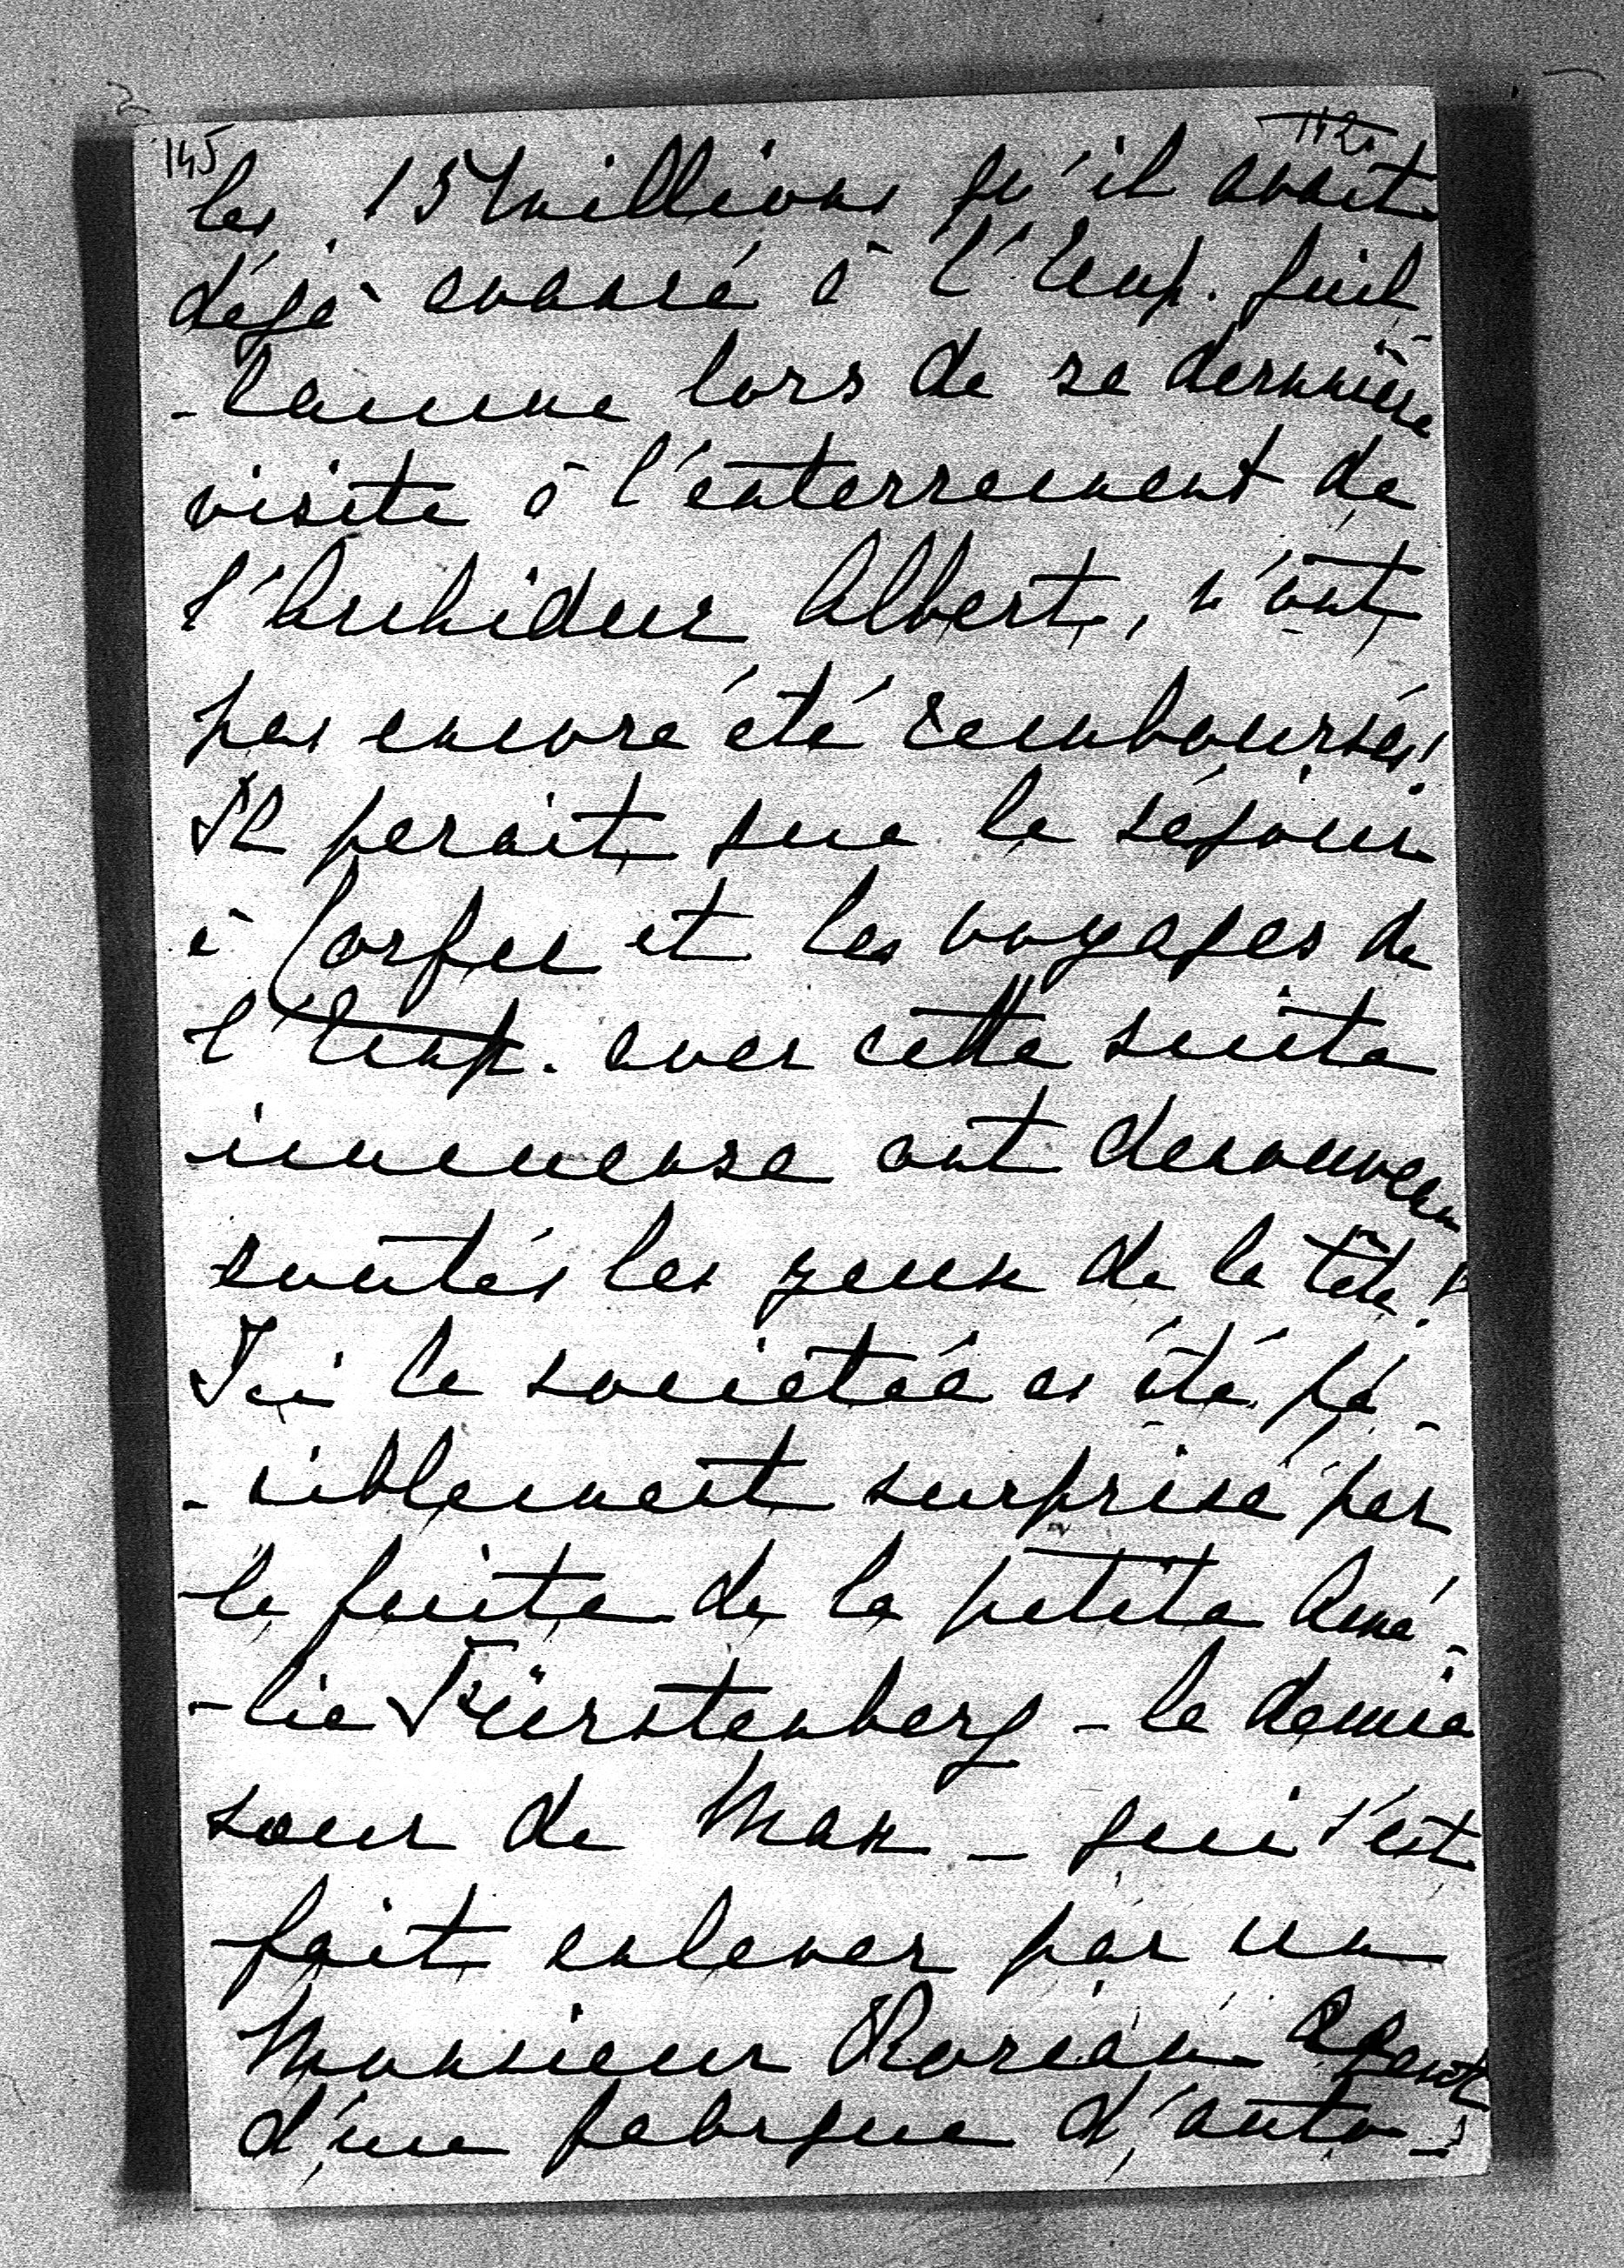 145 112.
les 15 millions qu'il avait
déjà avancé à l'Emp. Guil
-laume lors de sa dernière
visite à l'enterrement de
l'Archiduc Albert, n'ont
pas encore été remboursés!
Il parait que le séjour
à Corfu et les voyages de
l'Emp. avec cette suite
immense ont denouveau
coutés les yeux de la tête!
Ici la societée a été pé-
-niblement surprise par
la fuite de la petite Amé-
-lie Fürstenberg - la demie
soeur de Max - qui s'est
fait enlever par un
Monsieur Koczian Agent
d'une fabrque d'auto-